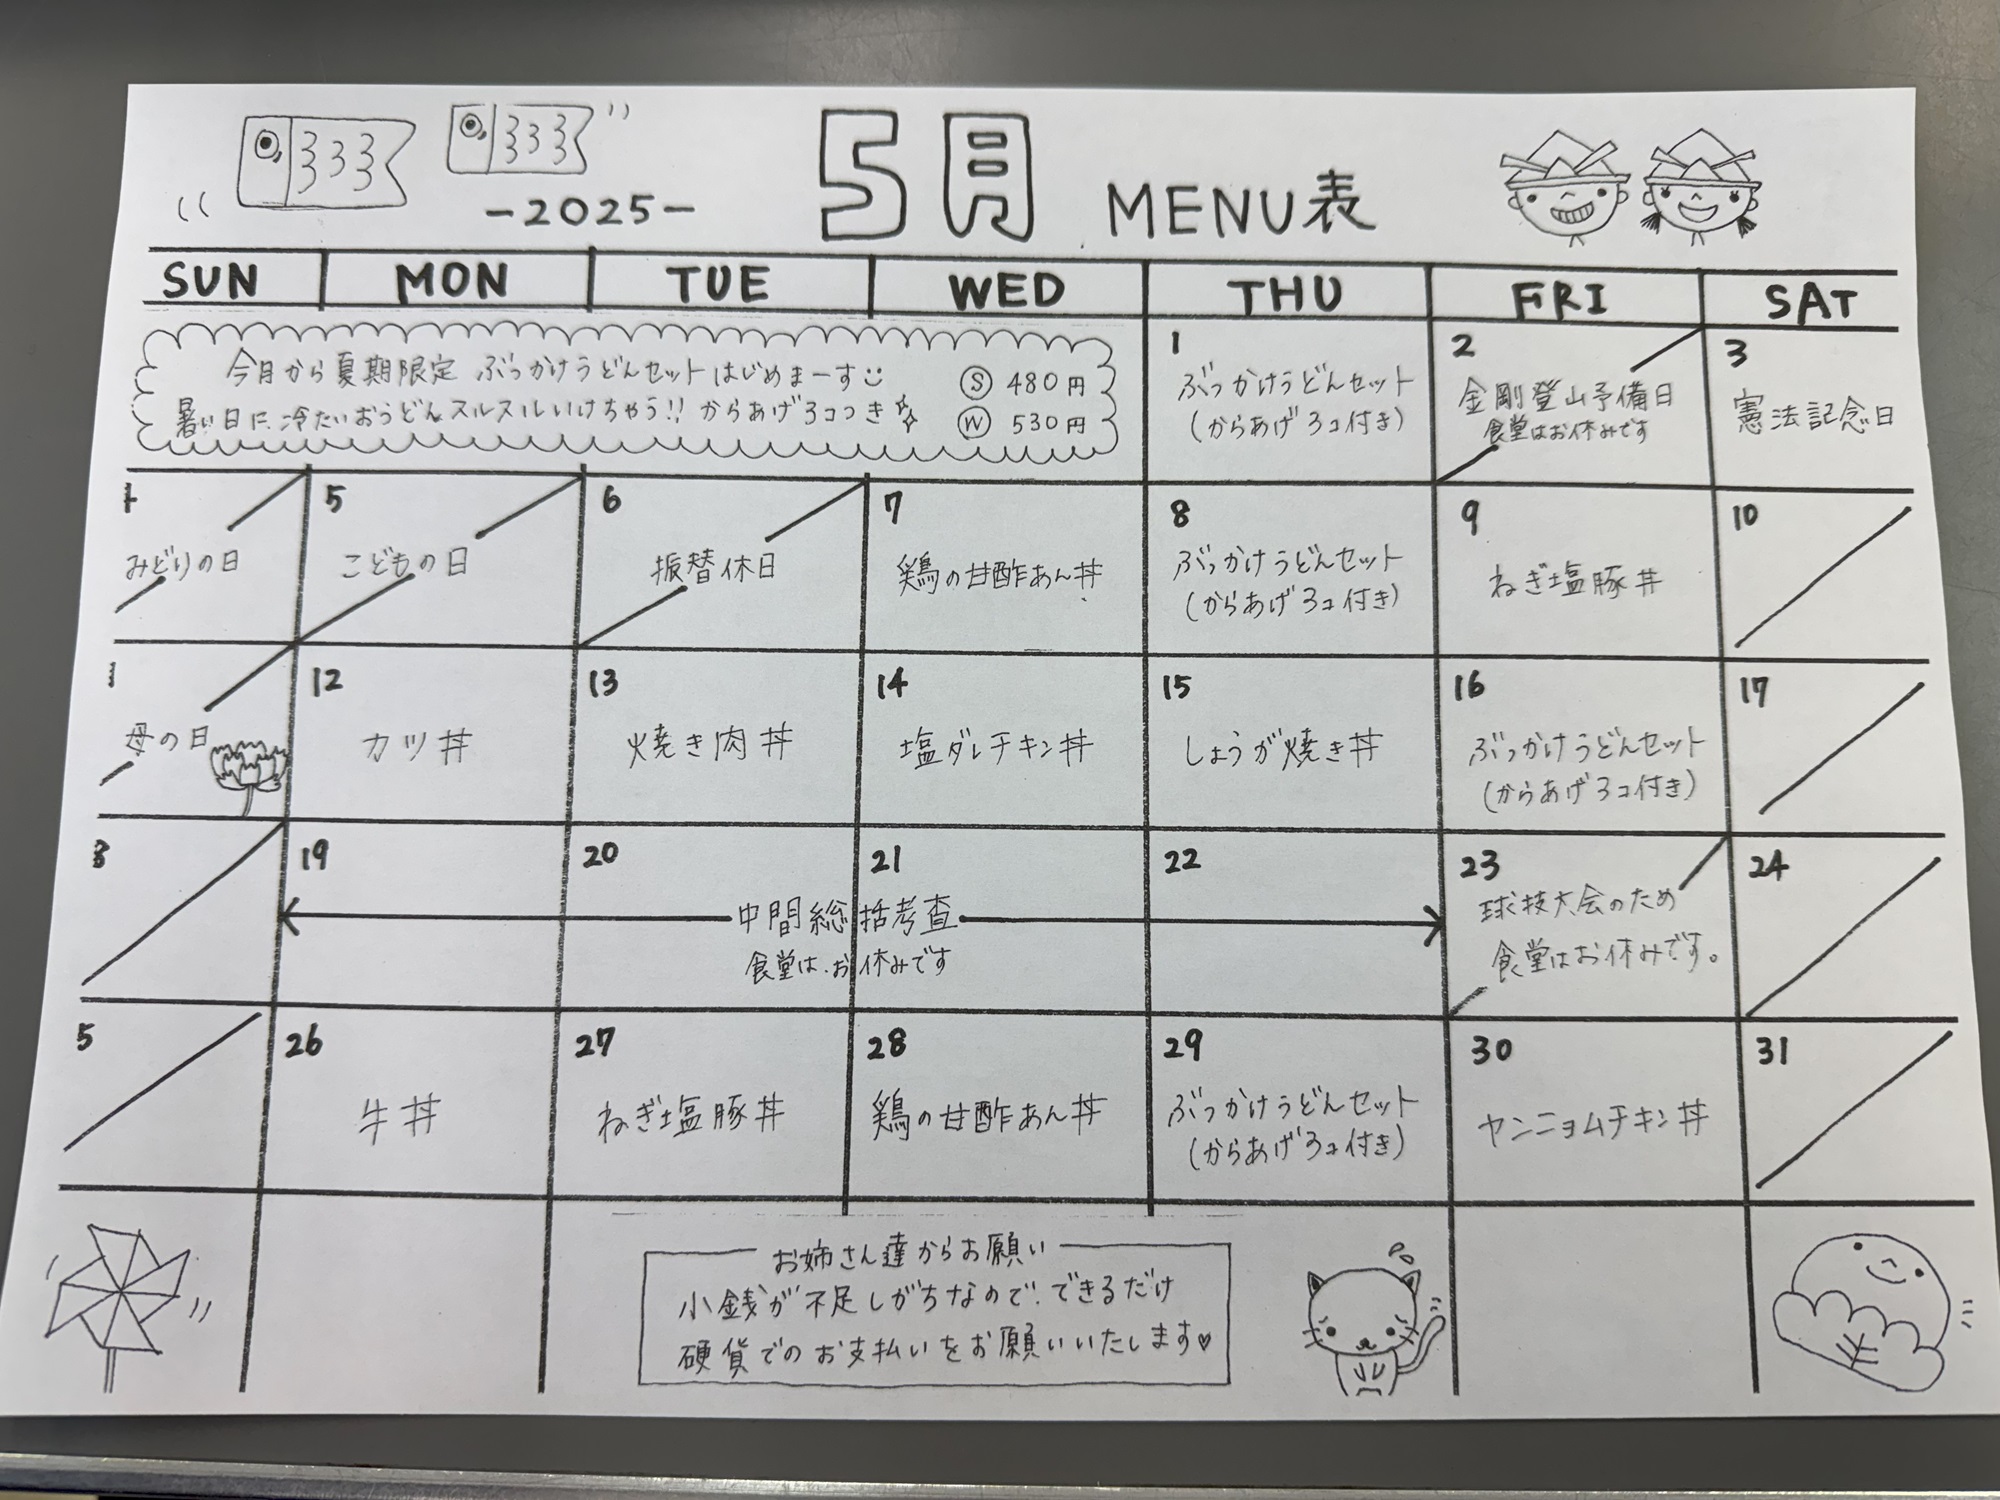 -2025- 5月 MENU表
SUN MON TUE WED THU FRI SAT
今月から夏期限定 ぶっかけうどんセットはじめまーす
暑い日に、冷たいおうどんスルスルいけちゃう!! からあげ3コつき
Ⓢ 480円
Ⓦ 530円
1
ぶっかけうどんセット
(からあげ3コ付き)
2
金剛登山予備日
食堂はお休みです
3
憲法記念日
みどりの日
5
こどもの日
6
振替休日
7
鶏の甘酢あん丼
8
ぶっかけうどんセット
(からあげ3コ付き)
9
ねぎ塩豚丼
10
1
母の日
12
カツ丼
13
焼き肉丼
14
塩ダレチキン丼
15
しょうが焼き丼
16
ぶっかけうどんセット
(からあげ3コ付き)
17
19
20
21
22
中間総括考査
食堂は、お休みです
23
球技大会のため
食堂はお休みです。
24
5
26
牛丼
27
ねぎ塩豚丼
28
鶏の甘酢あん丼
29
ぶっかけうどんセット
(からあげ3コ付き)
30
ヤンニョムチキン丼
31
お姉さん達からお願い
小銭が不足しがちなので、できるだけ
硬貨でのお支払いをお願いいたします♡